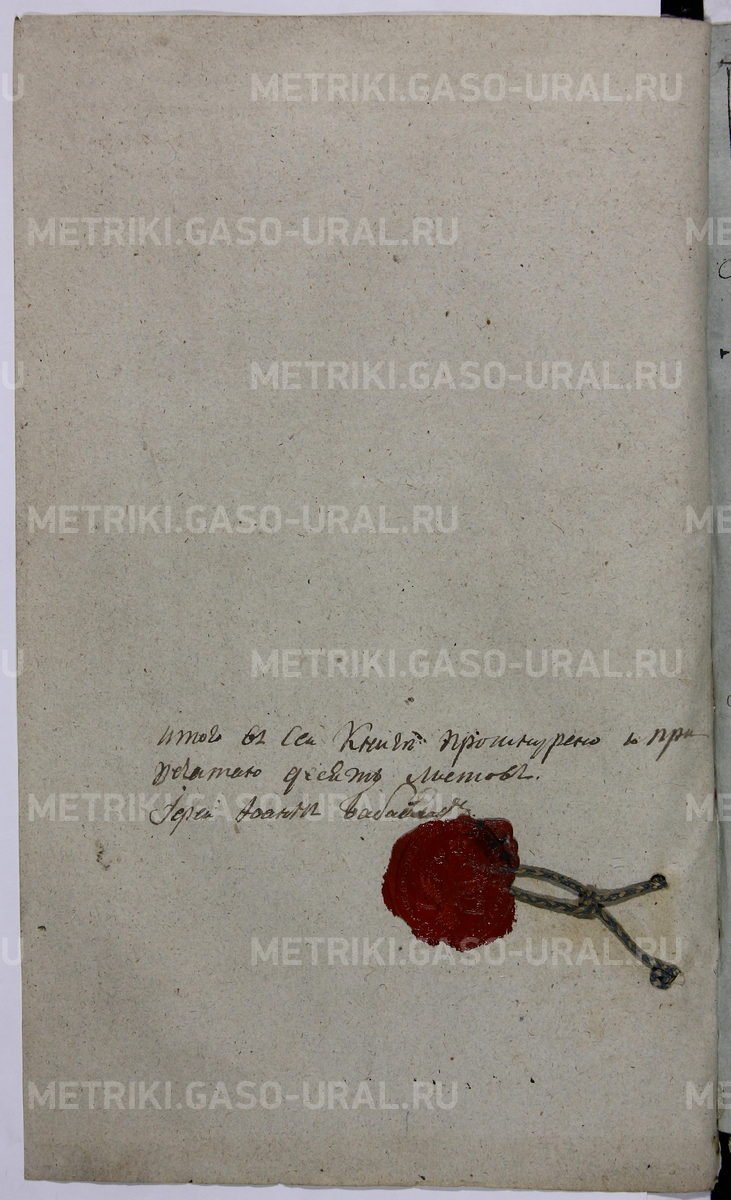 METRIKI.GASO-URAL.RU
METRIKI.GASO-URAL.RU
METRIKI.GASO-URAL.RU
METRIKI.GASO-URAL.RU
METRIKI.GASO-URAL.RU
итого въ сей Книгѣ прошнурено и при
печатано десять листовъ.
Іерей Іоаннъ
METRIKI.GASO-URAL.RU
METRIKI.GASO-URAL.RU
METRIKI.GASO-URAL.RU